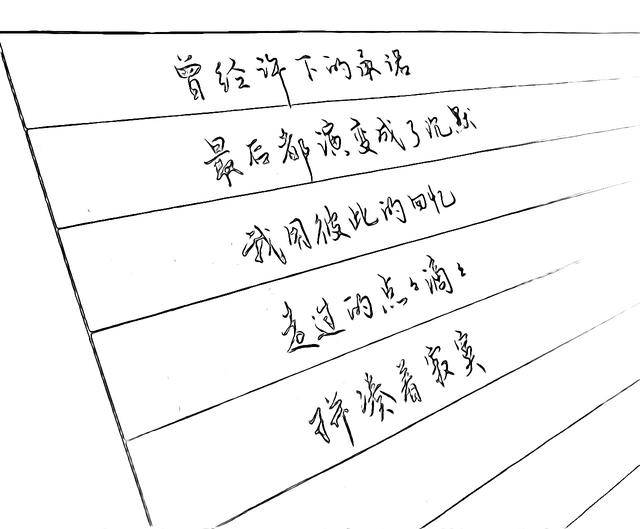 曾经许下的承诺
最后都演变成了沉默
我用彼此的回忆
走过的点点滴滴
拼凑着寂寞